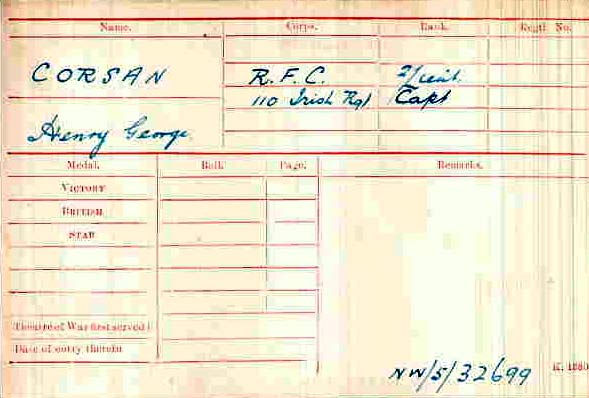 Name. Corps. Rank. Regtl. No.
CORSAN R.F.C. 2/Lieut.
110 Irish Rgt Capt
Henry George.
Medal. Roll. Page. Remarks.
VICTORY
BRITISH
STAR
Theatre of War first served in
Date of entry therein
NW/5/32699 K. 1380